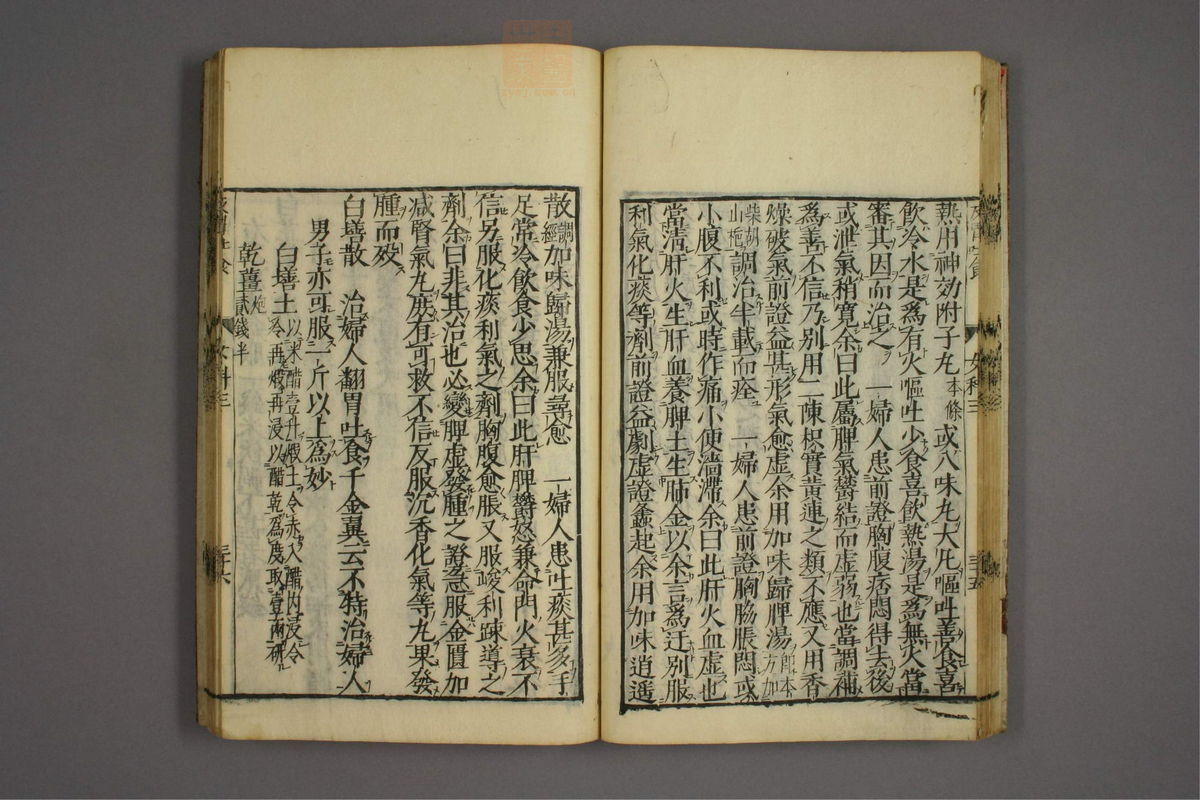 熱用神効附子丸本條或八味丸大凡嘔吐善食喜
飲冷水是爲有火嘔吐少食喜飲熱湯是爲無火當
審其因而治之 一婦人患前證胸腹痞悶得去後
或泄氣稍寛余曰此屬脾氣鬱結而虚弱也當調補
爲善不信乃別用二陳枳實黄連之類不應又用香
燥破氣前證益甚形氣愈虚余用加味歸脾湯即本方加
柴胡山梔調治半載而痊 一婦人患前證胸脇脹悶或
小腹不利或時作痛小便澁滯余曰此肝火血虚也
當清肝火生肝血養脾土生肺金以余言爲迂別服
利氣化痰等劑前證益劇虚證蠭起余用加味逍遥
散調經加味歸湯兼服尋愈 一婦人患吐痰甚多手
足常冷飲食少思余曰此肝脾鬱怒兼命門火衰不
信另服化痰利氣之劑胸腹愈脹又服峻利疎導之
劑余曰非其治也必變脾虚發腫之證急服金匱加
減腎氣丸庶有可救不信反服沉香化氣等丸果發
腫而殁
白墡散 治婦人翻胃吐食千金翼云不特治婦人
男子亦可服一斤以上爲妙
白墡土以米醋壹升煆土令赤入醋内浸令
冷再煆再浸以醋乾爲度取壹兩研
乾薑炮貳錢半
女科三
三十五
女科三
三十六